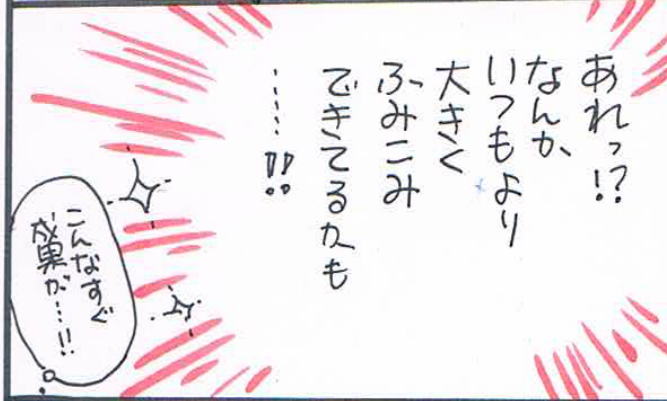 あれっ!?
なんか、
いつもより
大きく
ふみこみ
できてるかも
……!!
こんなすぐ
成果が…!!